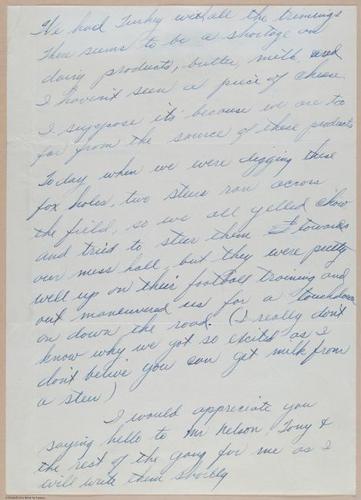 We had Turkey with all the trimmings
There seems to be a shortage on
dairy products, butter, milk and
I haven't seen a piece of cheese
I suppose its because we are too
far from the source of these products
Today when we were digging these
fox holes, two steers ran across
the field, so we all yelled chow
and tried to steer them towards
our mess hall, but they were pretty
well up on their football training and
out maneuvered us for a touchdown
on down the road. (I really dont
know why we got so excited as I
dont belive you can get milk from
a steer)
I would appreciate you
saying hello to Mr Nelson, Tony &
the rest of the gang for me as I
will write them shortly